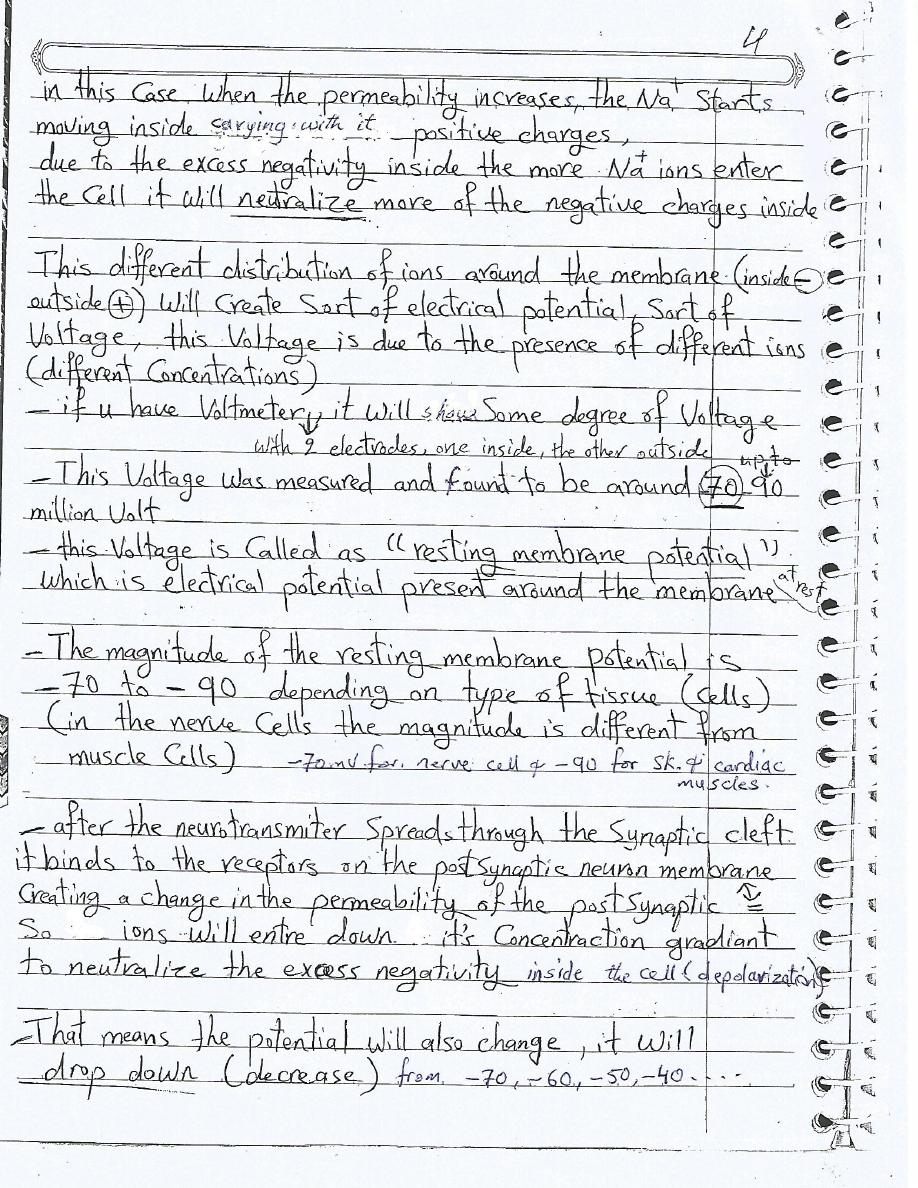 4
in this Case, When the permeability increases, the Na+ Starts
moving inside carying with it positive charges,
due to the excess negativity inside the more Na+ ions enter
the Cell it will neutralize more of the negative charges inside
This different distribution of ions around the membrane (inside ⊖
outside ⊕) Will Create Sort of electrical potential, Sort of
Voltage, this Voltage is due to the presence of different ions
(different Concentrations)
- if u have Voltmeter, it Will show Some degree of Voltage
with 2 electrodes, one inside, the other outside
up to
- This Voltage was measured and fount to be around 70-90
million Volt
- this Voltage is Called as ((resting membrane potential))
which is electrical potential present around the membrane at rest
- The magnitude of the resting membrane potential is
-70 to -90 depending on type of tissue (Cells)
(in the nerve Cells the magnitude is different from
muscle Cells) -70mV for nerve cell & -90 for sk. & cardiac
muscles.
- after the neurotransmiter Spreads through the Synaptic cleft
it binds to the receptors on the postSynaptic neuron membrane
Creating a change in the permeability of the postSynaptic =
So ions will entre down it's Concentraction gradiant
to neutralize the excess negativity inside the cell (depolarization)
- That means the potential will also change, it will
drop down (decrease) from -70, -60, -50, -40.....